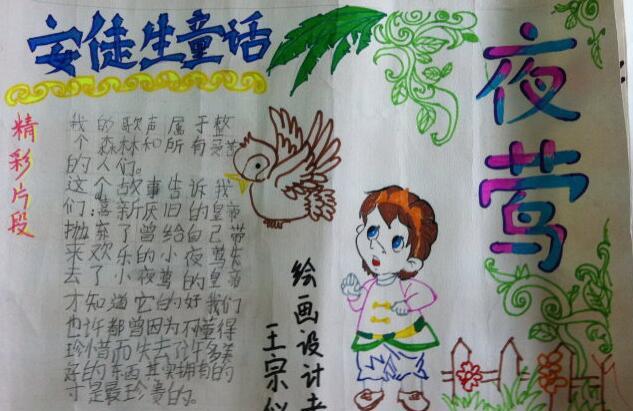 安徒生童话
夜莺
精彩片段
我的歌声属于整
个森林和所有受苦
的人们。
这个故事告诉我
们:喜新厌旧的皇帝
抛弃了曾给自己带
来欢乐的小夜莺失
去了小夜莺的皇帝
才知道它的好我们
也许都曾因为不懂得
珍惜而失去了许多美
好的东西其实拥有的
才是最珍贵的。
绘画设计者
王宗